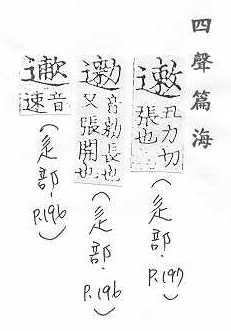 四聲篇海
遫 丑力切
張也
(辵部.P.197)
音勑長也
又張開也
(辵部.P.196)
遬
音
速
(辵部.P.196)